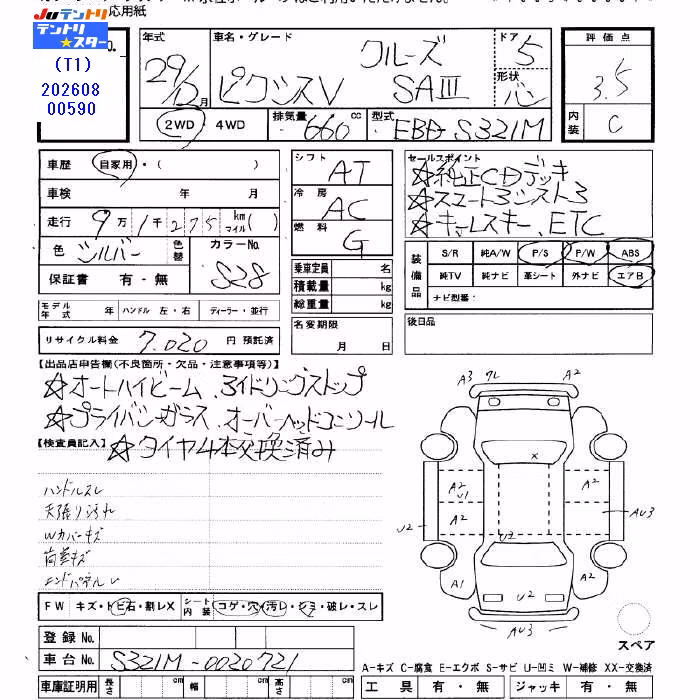 応用紙
Juテントリ
テントリ★スター
(T1)
202608
00590
年式 車名・グレード ドア 評価点
29/12月 ピクシスV クルーズ SAIII 5 3.5
形状 バン
2WD・4WD 排気量 660 cc 型式 EBD-S321M 内装 C
車歴 自家用・( )
車検 年 月
走行 9万1千275 km マイル( )
色 シルバー 色替 カラーNo. S28
保証書 有・無
シフト AT
冷房 AC
燃料 G
乗車定員 名
積載量 kg
総重量 kg
セールスポイント
☆純正CDデッキ
☆スマートアシスト3
☆キーレスキー、ETC
装備品 S/R 純A/W P/S P/W ABS
純TV 純ナビ 革シート 外ナビ エアB
ナビ型番:
モデル年式 年 ハンドル 左・右 ディーラー・並行
リサイクル料金 7,020 円 預託済
名変期限 月 日
後日品
【出品店申告欄(不良箇所・欠品・注意事項等)】
☆オートハイビーム、アイドリングストップ
☆プライバシーガラス、オーバーヘッドコンソール
【検査員記入】 ☆タイヤ4本交換済み
ハンドルスレ
天張り汚れ
Wカバーキズ
荷室キズ
エンドパネルU
A3 クレ A2
A2 A2
X
A2 U1 A2
A2
U2 U2 AU3
A1 U2 A2
AU3
FW キズ・トビ石・割レX シート内装 コゲ・穴・汚レ・シミ・破レ・スレ
スペア
登録No.
車台No. S321M-0020721
A-キズ C-腐食 E-エクボ S-サビ U-凹ミ W-補修 XX-交換済
車庫証明用 長さ cm 幅 cm 高さ cm 工具 有・無 ジャッキ 有・無